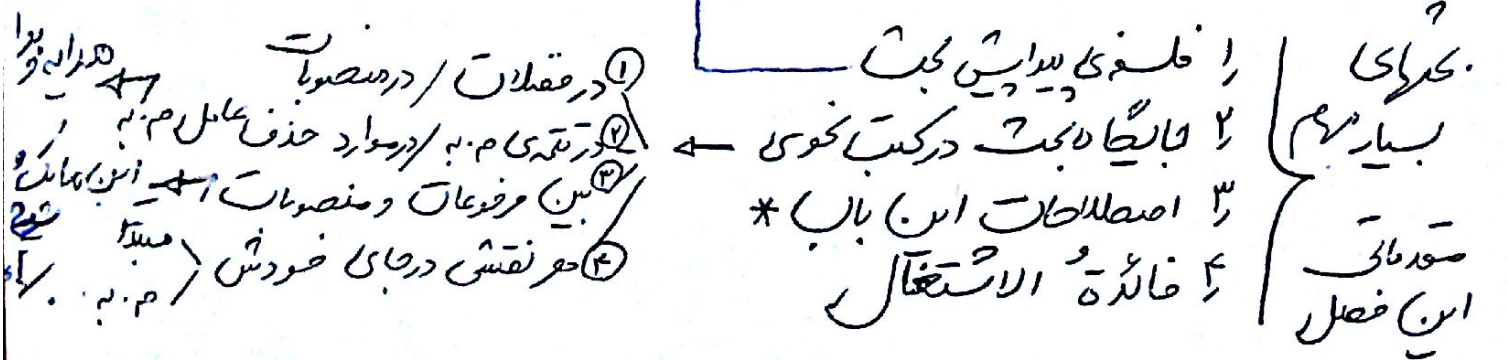 بحثهای
بسیار مهم
مقدماتی
این فصل
۱, فلسفه‌ی پیدایش بحث
۲, جایگاه بحث در کتب نحوی ←
۳, اصطلاحات این باب *
۴, فائدةُ الاشتغال
① در مفصلات / در منصوبات ← هدایه و
② در تتمه‌ی م.به / در موارد حذف عامل م.به
③ بین مرفوعات و منصوبات ← ابن مالک و شروح
④ هر نقشی در جای خودش مبتدا / م.به